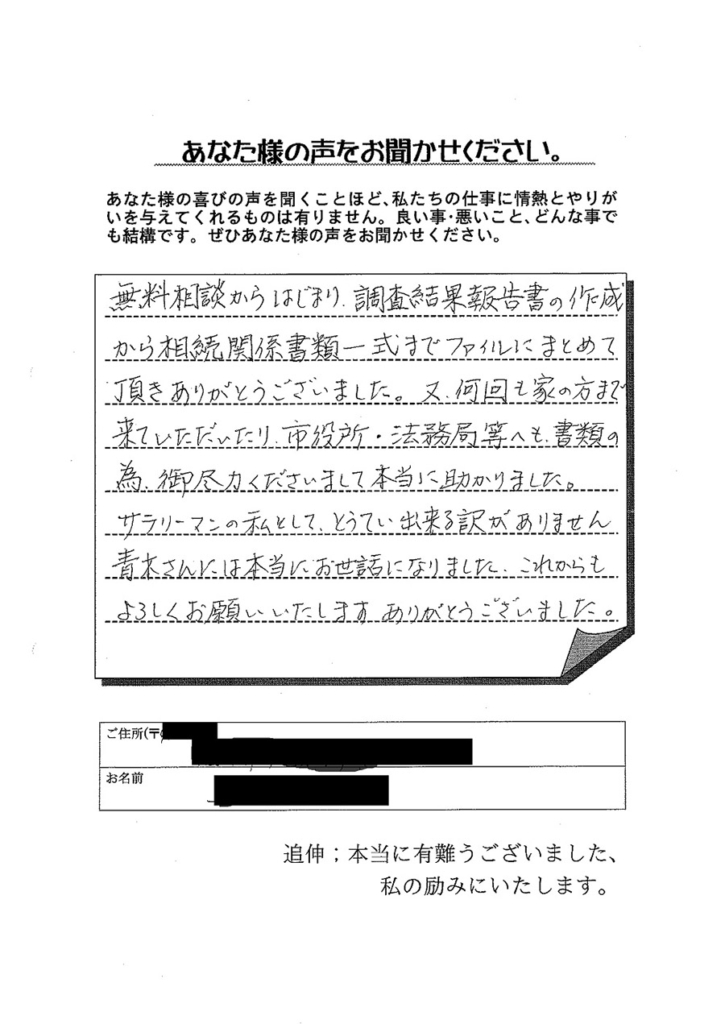 あなた様の声をお聞かせください。
あなた様の喜びの声を聞くことほど、私たちの仕事に情熱とやりが
いを与えてくれるものは有りません。良い事・悪いこと、どんな事で
も結構です。ぜひあなた様の声をお聞かせください。
無料相談からはじまり、調査結果報告書の作成
から相続関係書類一式までファイルにまとめて
頂きありがとうございました。又、何回も家の方まで
来ていただいたり、市役所・法務局等へも、書類の
為、御尽力くださいまして本当に助かりました。
サラリーマンの私として、とうてい出来る訳がありません
青木さんには本当にお世話になりました、これからも
よろしくお願いいたします ありがとうございました。
ご住所(〒
お名前
追伸；本当に有難うございました、
私の励みにいたします。